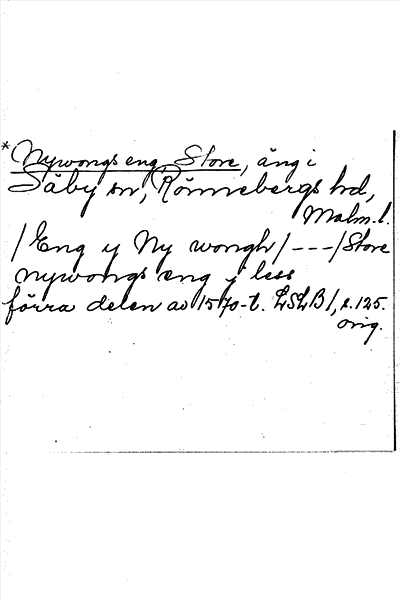 *Nywongs eng, Store, äng i
Säby sn, Rönnebergs hd,
Malm.l.
/Eng y Ny wongh/---/Store
nywongs eng y less
förra delen av 1570-t. LSLB1, s.125.
orig.